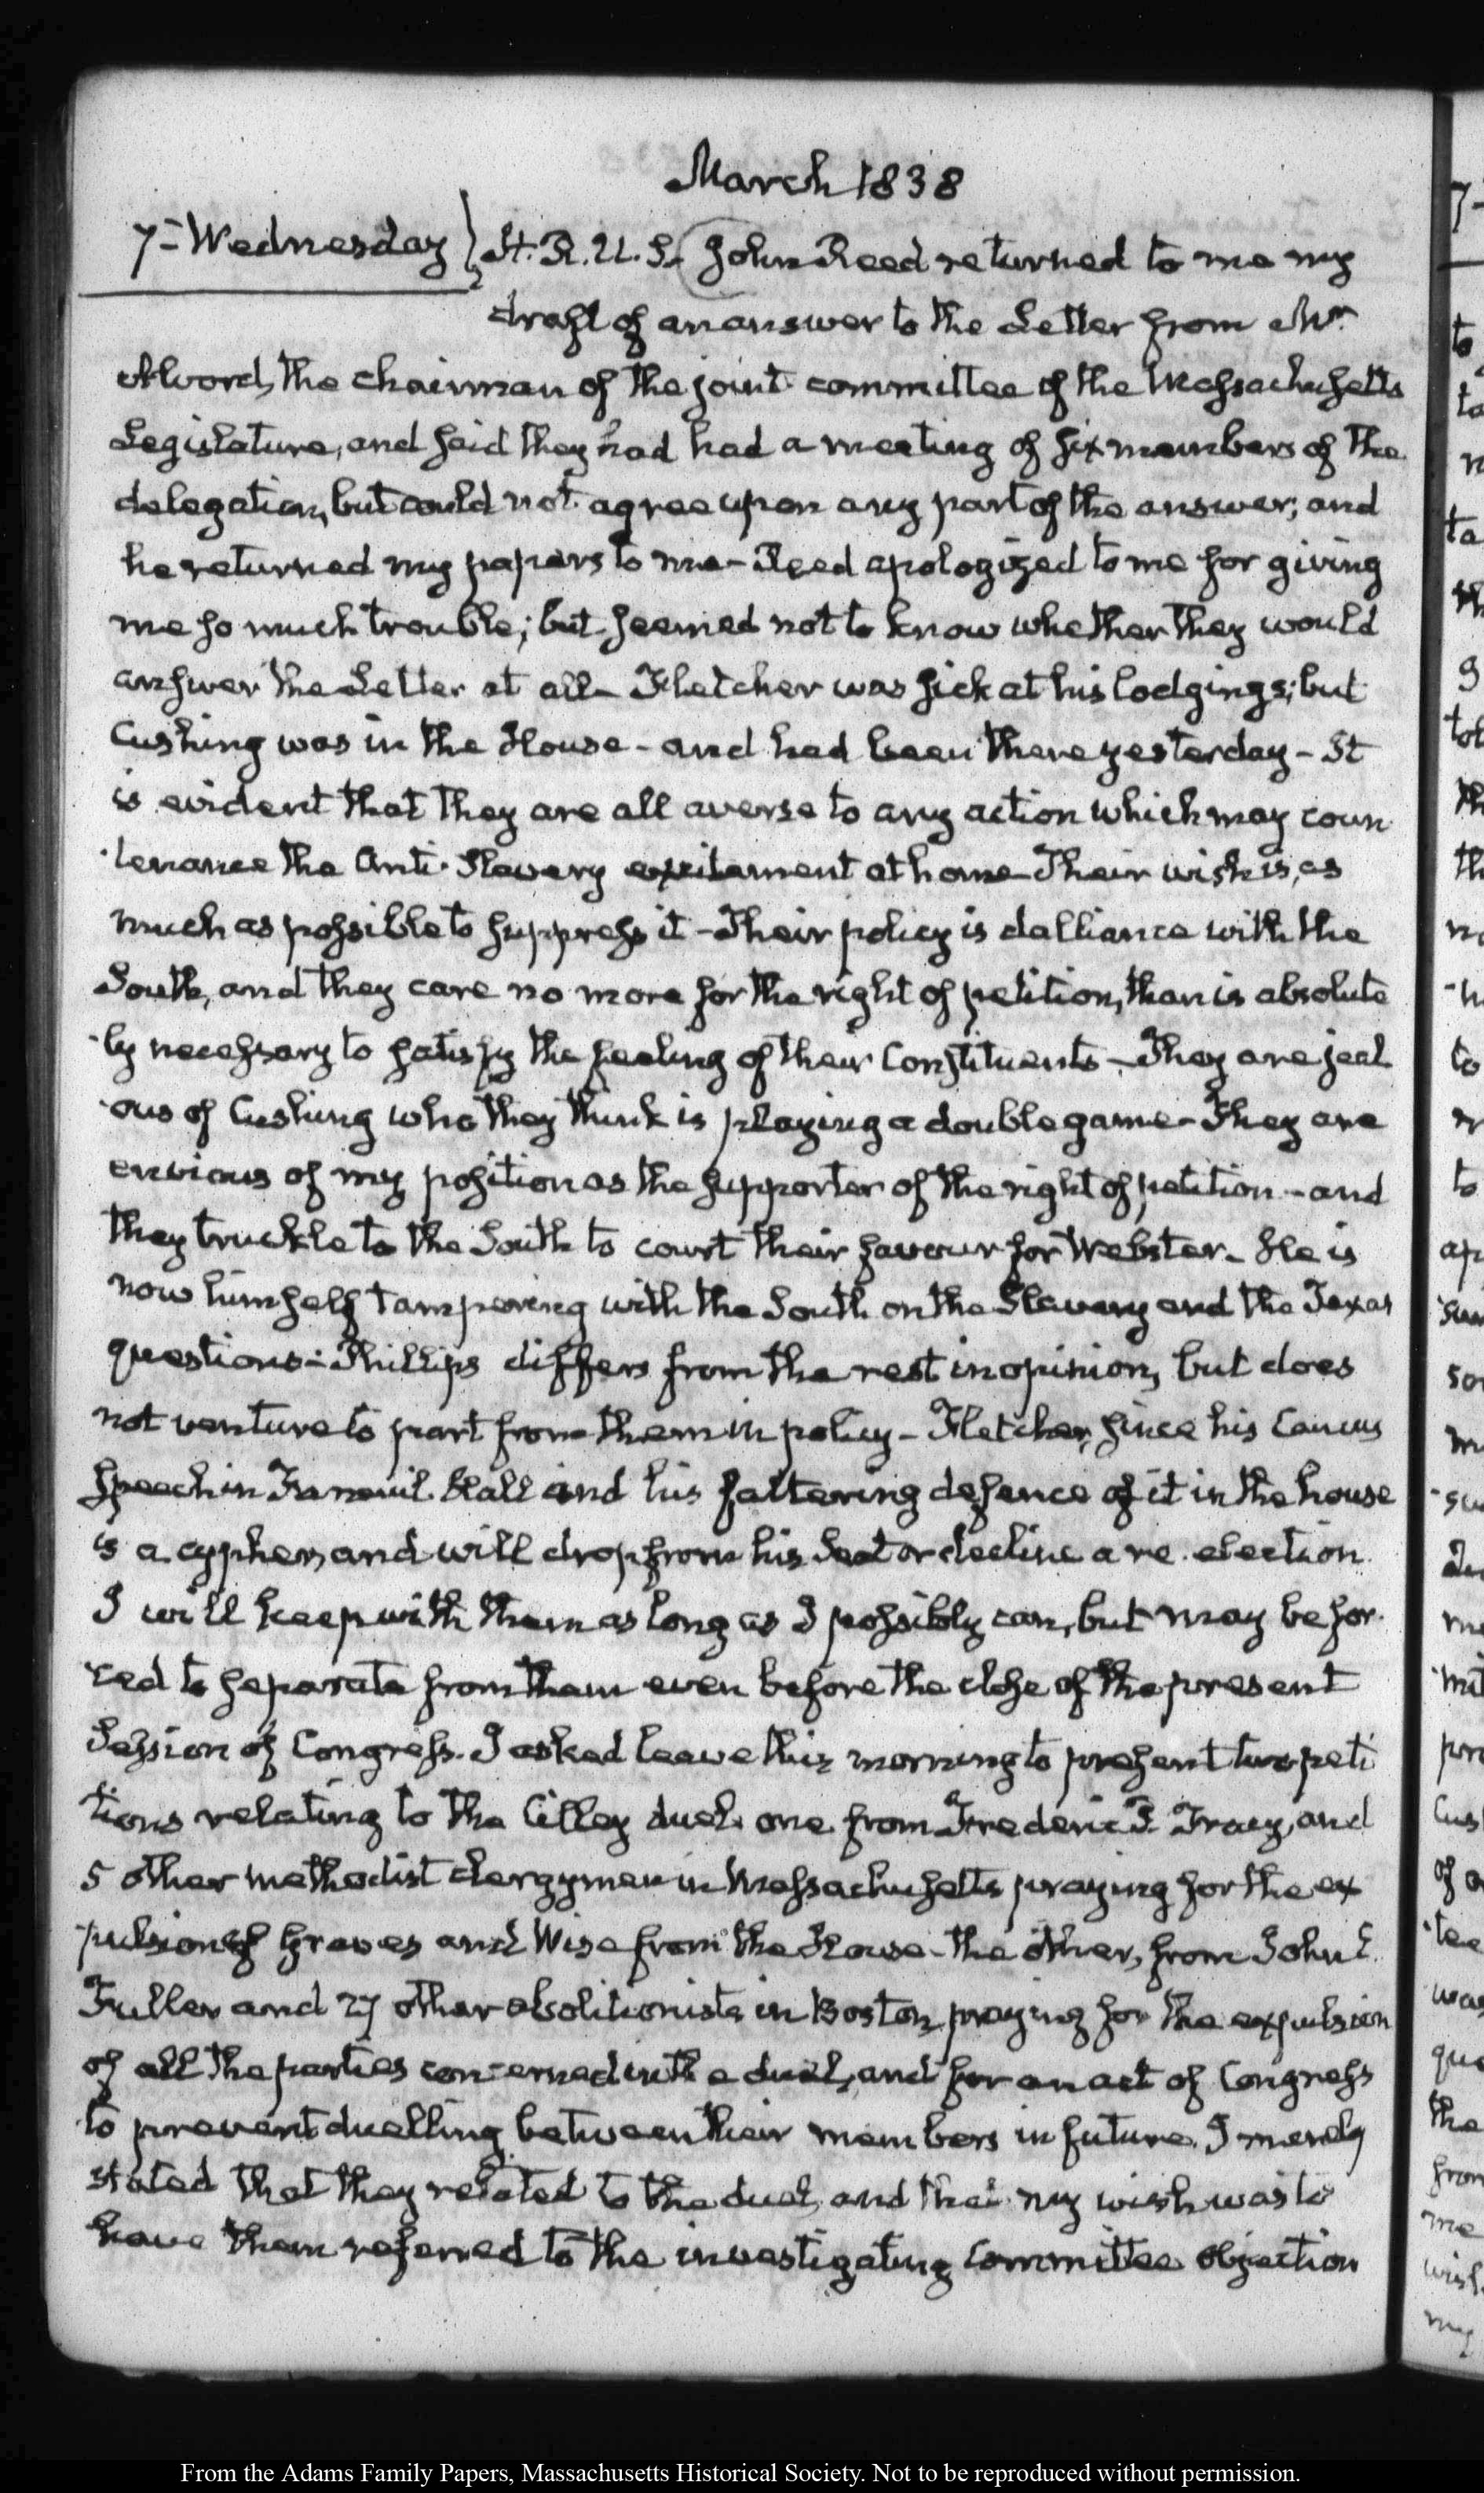 March 1838
7- Wednesday } H. R. U. S. John Reed returned to me my
draft of an answer to the Letter from Mr
Alvord, the chairman of the joint committee of the Massachusetts
Legislature, and said they had had a meeting of six members of the
delegation, but could not agree upon any part of the answer; and
he returned my papers to me- Reed apologized to me for giving
me so much trouble; but seemed not to know whether they would
answer the Letter at all- Fletcher was sick at his lodgings; but
Cushing was in the House- and had been there yesterday- It
is evident that they are all averse to any action which may coun
-tenance the Anti-Slavery excitement at home- Their wish is, as
much as possible to suppress it- Their policy is dalliance with the
South, and they care no more for the right of petition, than is absolute
-ly necessary to satisfy the feeling of their Constituents- They are jeal
-ous of Cushing who they think is playing a double game- They are
envious of my position as the supporter of the right of petition- and
they truckle to the South to court their favour for Webster- He is
now himself tampering with the South on the Slavery and the Texas
questions- Phillips differs from the rest in opinion, but does
not venture to part from them in policy- Fletcher, since his Caucus
Speech in Faneuil Hall and his faltering defence of it in the house
is a cypher, and will drop from his Seat or decline a re-election.
I will keep with them as long as I possibly can, but may be for-
ced to separate from them even before the close of the present
Session of Congress. I asked leave this morning to present two peti
tions relating to the Cilley duel. one from Frederic P. Tracy, and
5 other methodist clergymen in Massachusetts praying for the ex
-pulsion of Graves and Wise from the House- the other, from John E.
Fuller and 27 other abolitionists in Boston, praying for the expulsion
of all the parties concerned in the duel, and for an act of Congress
to prevent duelling between their members in future. I merely
stated that they related to the duel, and that my wish was to
have them referred to the investigating Committee. objection
From the Adams Family Papers, Massachusetts Historical Society. Not to be reproduced without permission.